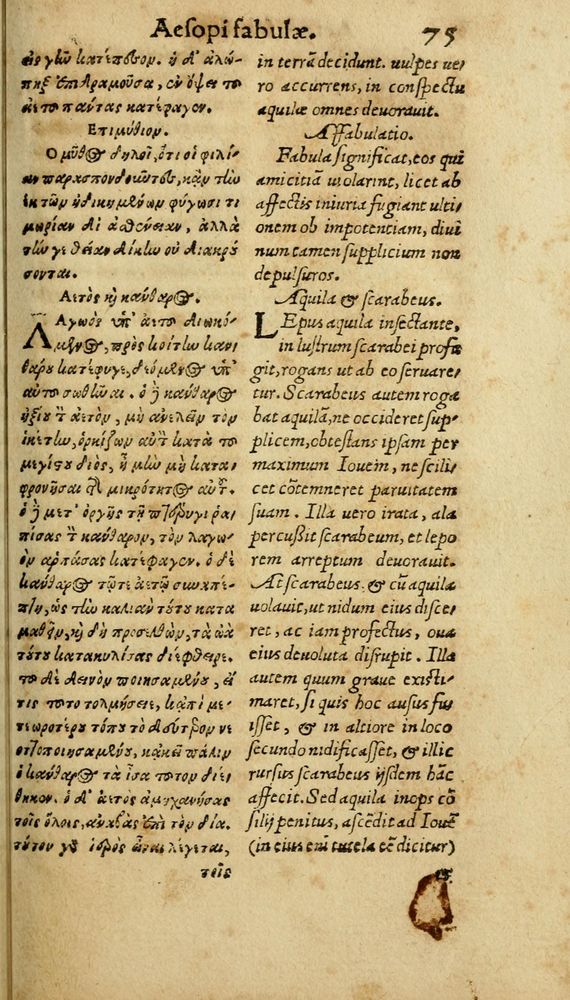 Aesopi fabulæ. 75
εἰς γῆν κατέπεσον. ἡ δ' ἀλώ-
πηξ ἐπιδραμοῦσα, ἐν ὄψει τοῦ
ἀετοῦ πάντας κατέφαγεν.
Επιμύθιον.
Ο μῦθος δηλοῖ, ὅτι οἱ φιλί-
αν παρασπονδοῦντες, κἂν τὴν
ἐκ τῶν ἠδικημένων φύγωσι τι
μωρίαν δι' ἀσθένειαν, ἀλλὰ
τήν γε θείαν δίκην οὐ διακρού
σονται.
Αετὸς καὶ κάνθαρος.
ΛΑγωὸς ὑπ' ἀετοῦ διωκό-
μενος, πρὸς κοίτην καν-
θάρου κατέφυγε, δεόμενος ὑπ'
αὐτοῦ σωθῆναι. ὁ δὲ κάνθαρος
ἠξίου τὸν ἀετὸν, μὴ ἀνελεῖν τὸν
ἱκέτην, ὁρκίζων αὐτὸν κατὰ τοῦ
μεγίστου διὸς, ἦ μὴν μὴ κατα-
φρονῆσαι τῆς μικρότητος αὐτοῦ.
ὁ δὲ μετ' ὀργῆς τῇ πτέρυγι ῥα-
πίσας τὸν κάνθαρον, τὸν λαγω-
ὸν ἁρπάσας κατέφαγεν. ὁ δὲ
κάνθαρος τῷτε ἀετῷ συναπέ-
πτη, ὡς τὴν καλιὰν τούτου κατα
μαθεῖν, καὶ δὴ προσελθὼν, τὰ ὠὰ
τούτου κατακυλίσας διέφθειρε.
τοῦ δὲ δεινὸν ποιησαμένου, εἴ
τις τοῦτο τολμήσειε, κἀπὶ με-
τεωροτέρου τόπου τὸ δεύτερον νε
οττοποιησαμένου, κἀκεῖ πάλιν
ὁ κάνθαρος τὰ ἴσα τοῦτον διέ-
θηκεν. ὁ δ' ἀετὸς ἀμηχανήσας
τοῖς ὅλοις, ἀναβὰς ἐπὶ τὸν δία.
τούτου γὰρ ἱερὸς εἶναι λέγεται,
τοῖς
in terrā decidunt. uulpes ue-
ro accurrens, in conspectu
aquilæ omnes deuorauit.
Affabulatio.
Fabula significat, eos qui
amicitiā uiolarint, licet ab
affectis iniuria fugiant ulti-
onem ob impotentiam, diui
num tamen supplicium non
depulsuros.
Aquila & scarabeus.
LEpus aquila insectante,
in lustrum scarabei profu
git, rogans ut ab eo seruare-
tur. Scarabeus autem roga
bat aquilā, ne occideret sup-
plicem, obtestans ipsam per
maximum Iouem, ne scili-
cet cōtemneret paruitatem
suam. Illa uero irata, ala
percußit scarabeum, et lepo
rem arreptum deuorauit.
At scarabeus & cū aquila
uolauit, ut nidum eius disce-
ret, ac iam profectus, oua
eius deuoluta disrupit. Illa
autem quum graue existi-
maret, si quis hoc ausus fu
isset, & in altiore in loco
secundo nidificasset, & illic
rursus scarabeus ijsdem hāc
affecit. Sed aquila inops cō
silij penitus, ascēdit ad Iouē
(in eius eni tutela eē dicitur)